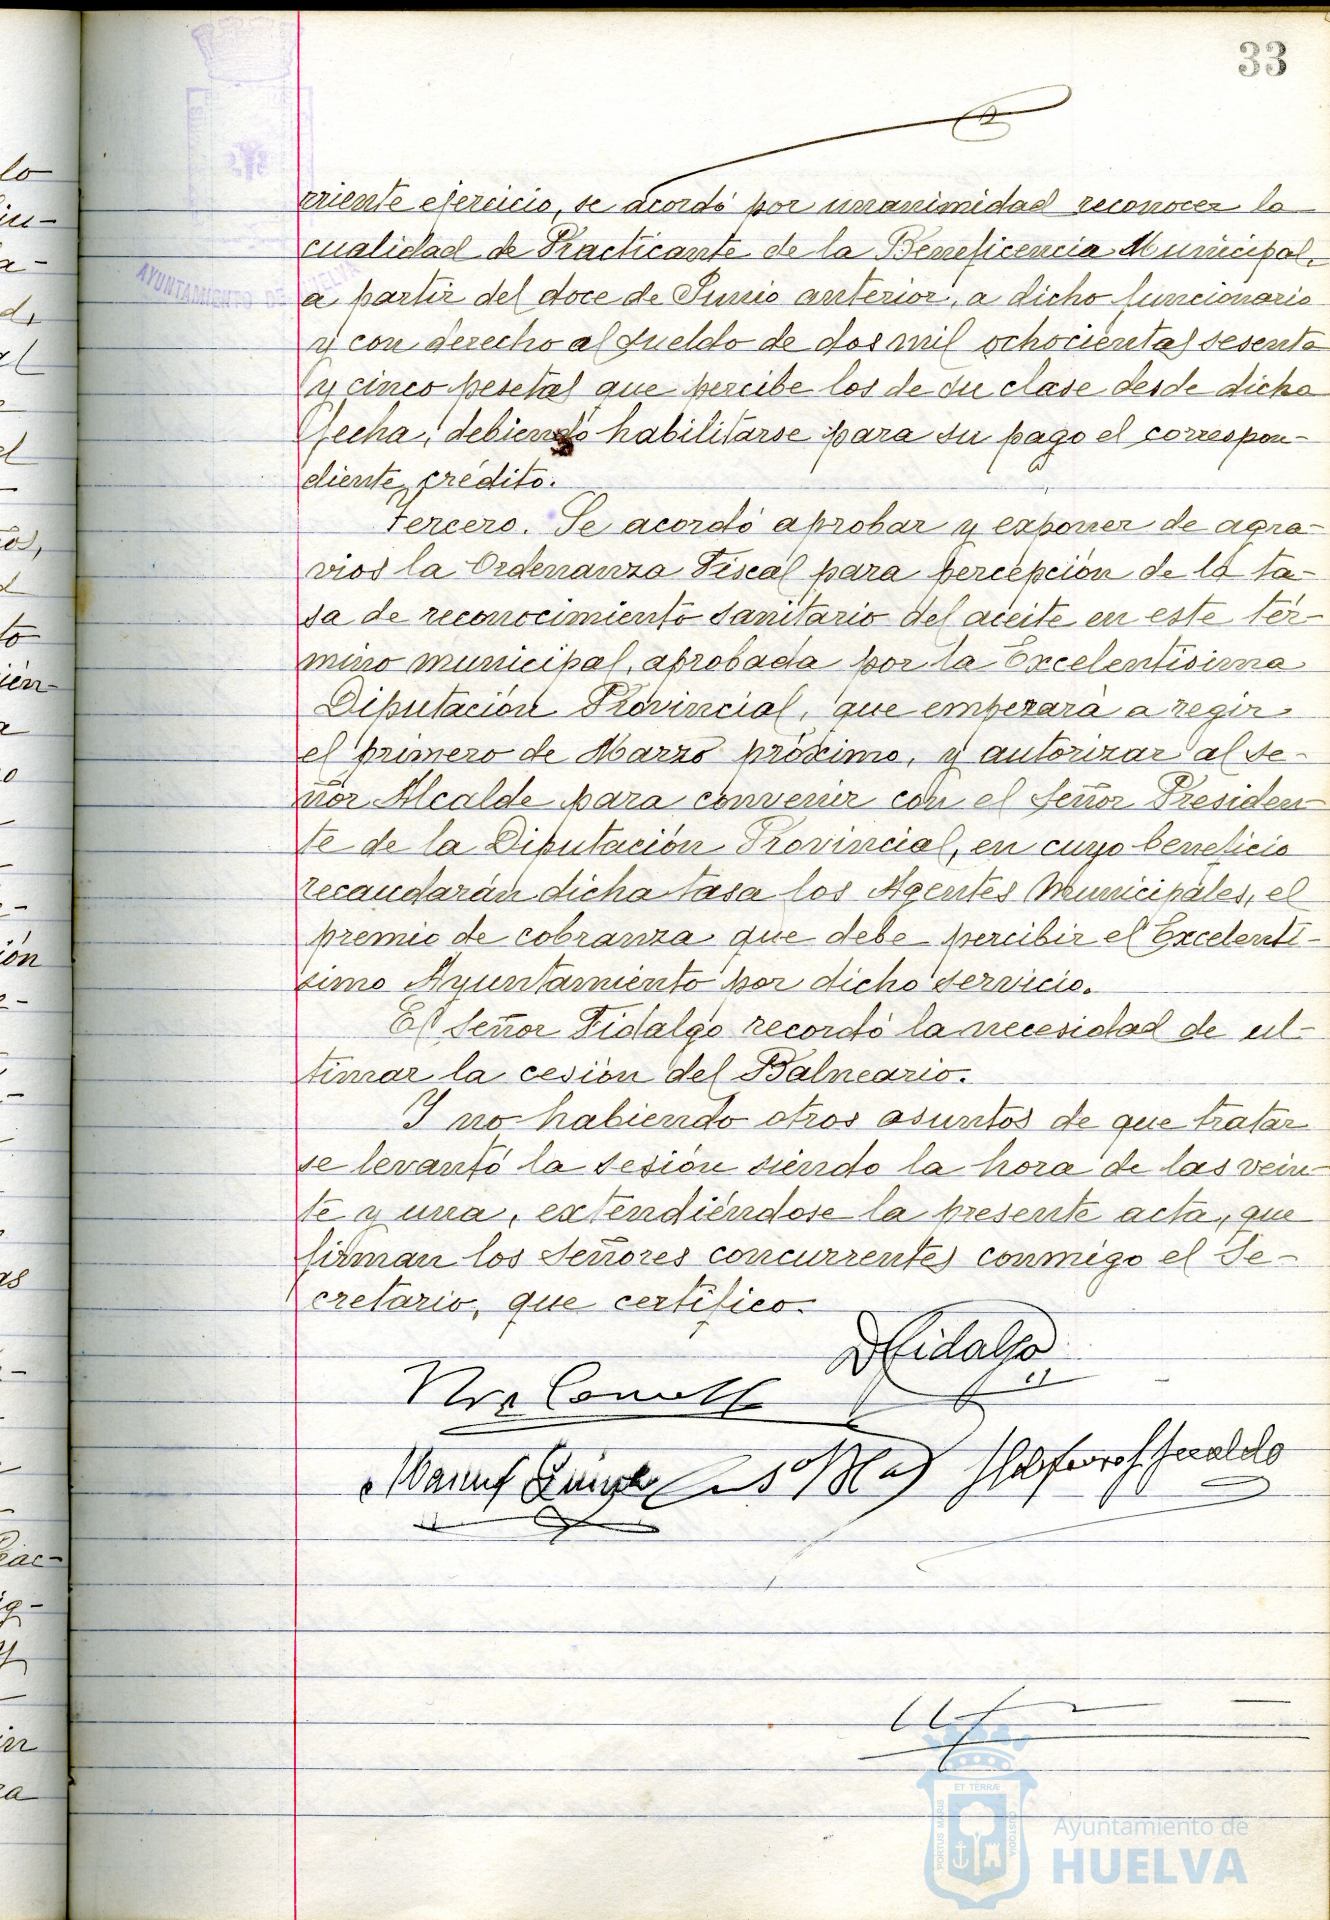 33
rriente ejercicio, se acordó por unanimidad reconocer la
cualidad de Practicante de la Beneficencia Municipal,
a partir del doce de Junio anterior, a dicho funcionario
y con derecho al sueldo de dos mil ochocientas sesenta
y cinco pesetas que percibe los de su clase desde dicha
fecha, debiendo habilitarse para su pago el correspon-
diente crédito.
Tercero. Se acordó aprobar y exponer de agra-
vios la Ordenanza Fiscal para percepción de la ta-
sa de reconocimiento sanitario del aceite en este tér-
mino municipal, aprobada por la Excelentisima
Diputación Provincial, que empezará a regir
el primero de Marzo próximo, y autorizar al Se-
ñor Alcalde para convenir con el Señor Presiden-
te de la Diputación Provincial, en cuyo beneficio
recaudarán dicha tasa los Agentes Municipales, el
premio de cobranza que debe percibir el Excelentí-
simo Ayuntamiento por dicho servicio.
El Señor Fidalgo recordó la necesidad de ul-
timar la cesión del Balneario.
Y no habiendo otros asuntos de que tratar
se levantó la sesión siendo la hora de las vein-
te y una, extendiéndose la presente acta, que
firman los Señores concurrentes conmigo el Se-
cretario, que certifico.
D Fidalgo
AYUNTAMIENTO DE HUELVA
PORTUS MARIS ET TERRÆ CUSTODIA
Ayuntamiento de
HUELVA